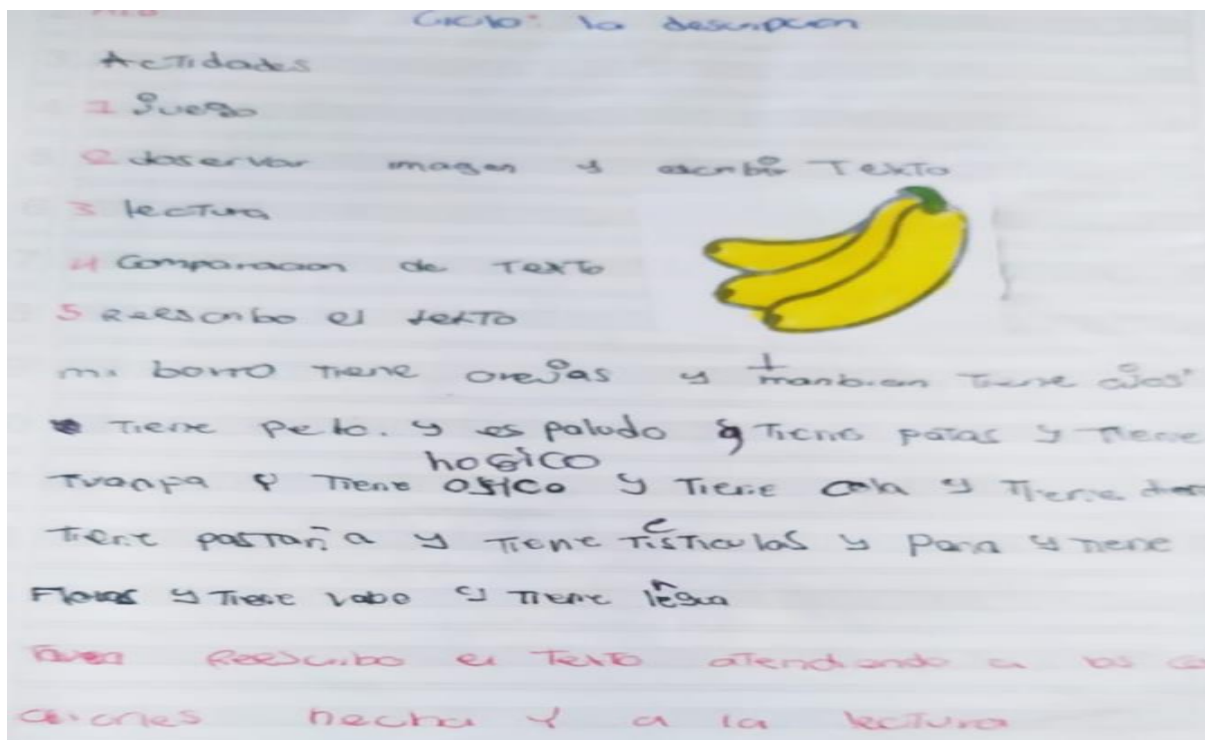 Ciclo: la descripcion
Actidades
1 Juego
2 observar imagen y escribir Texto
3 lectura
4 Comparacion de Texto
5 Reescribo el texto
mi borro tiene orejas y tmanbien tiene ojos
tiene pelo. y es paludo y tiene patas y tiene
hogico
y tiene osico y tiene cola y tiene
tiene pastaña y tiene testiculas y para y tiene
y tiene vabo y tiene lengua
tarea Reescribo el texto atendiendo a las
hecha y a la lectura